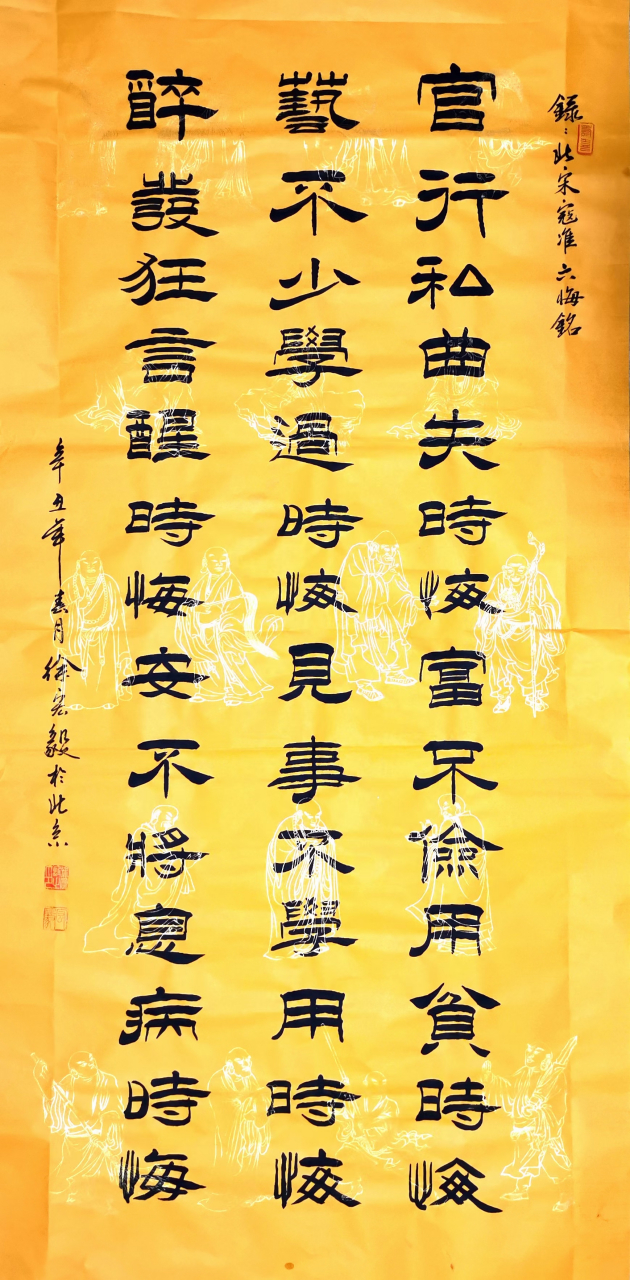 錄：北宋寇准六悔銘
官行私曲失時悔富不儉用貧時悔
藝不少學過時悔見事不學用時悔
醉發狂言醒時悔安不將息病時悔
辛丑年春月徐宏毅於北京